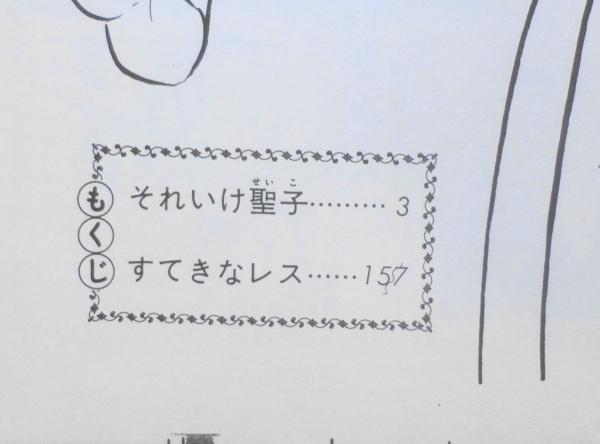 もくじ
それいけ聖子………3
せいこ
すてきなレス……157